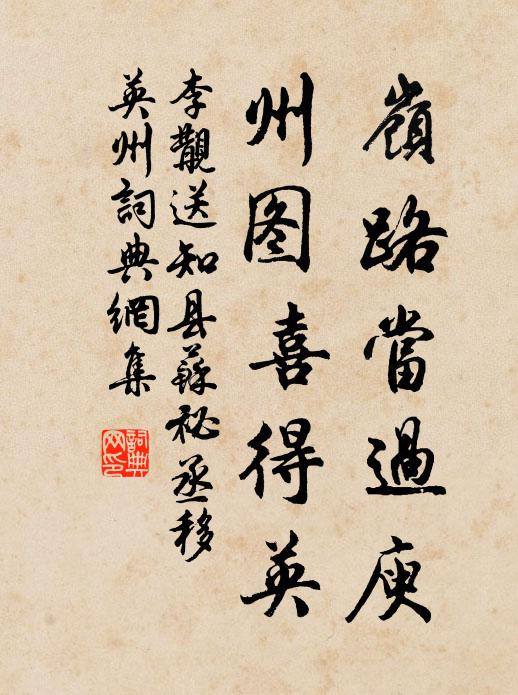 嶺路當過庾
州图喜得英
李覯送知县蘇祕丞移
英州詞典網集
詞典网印